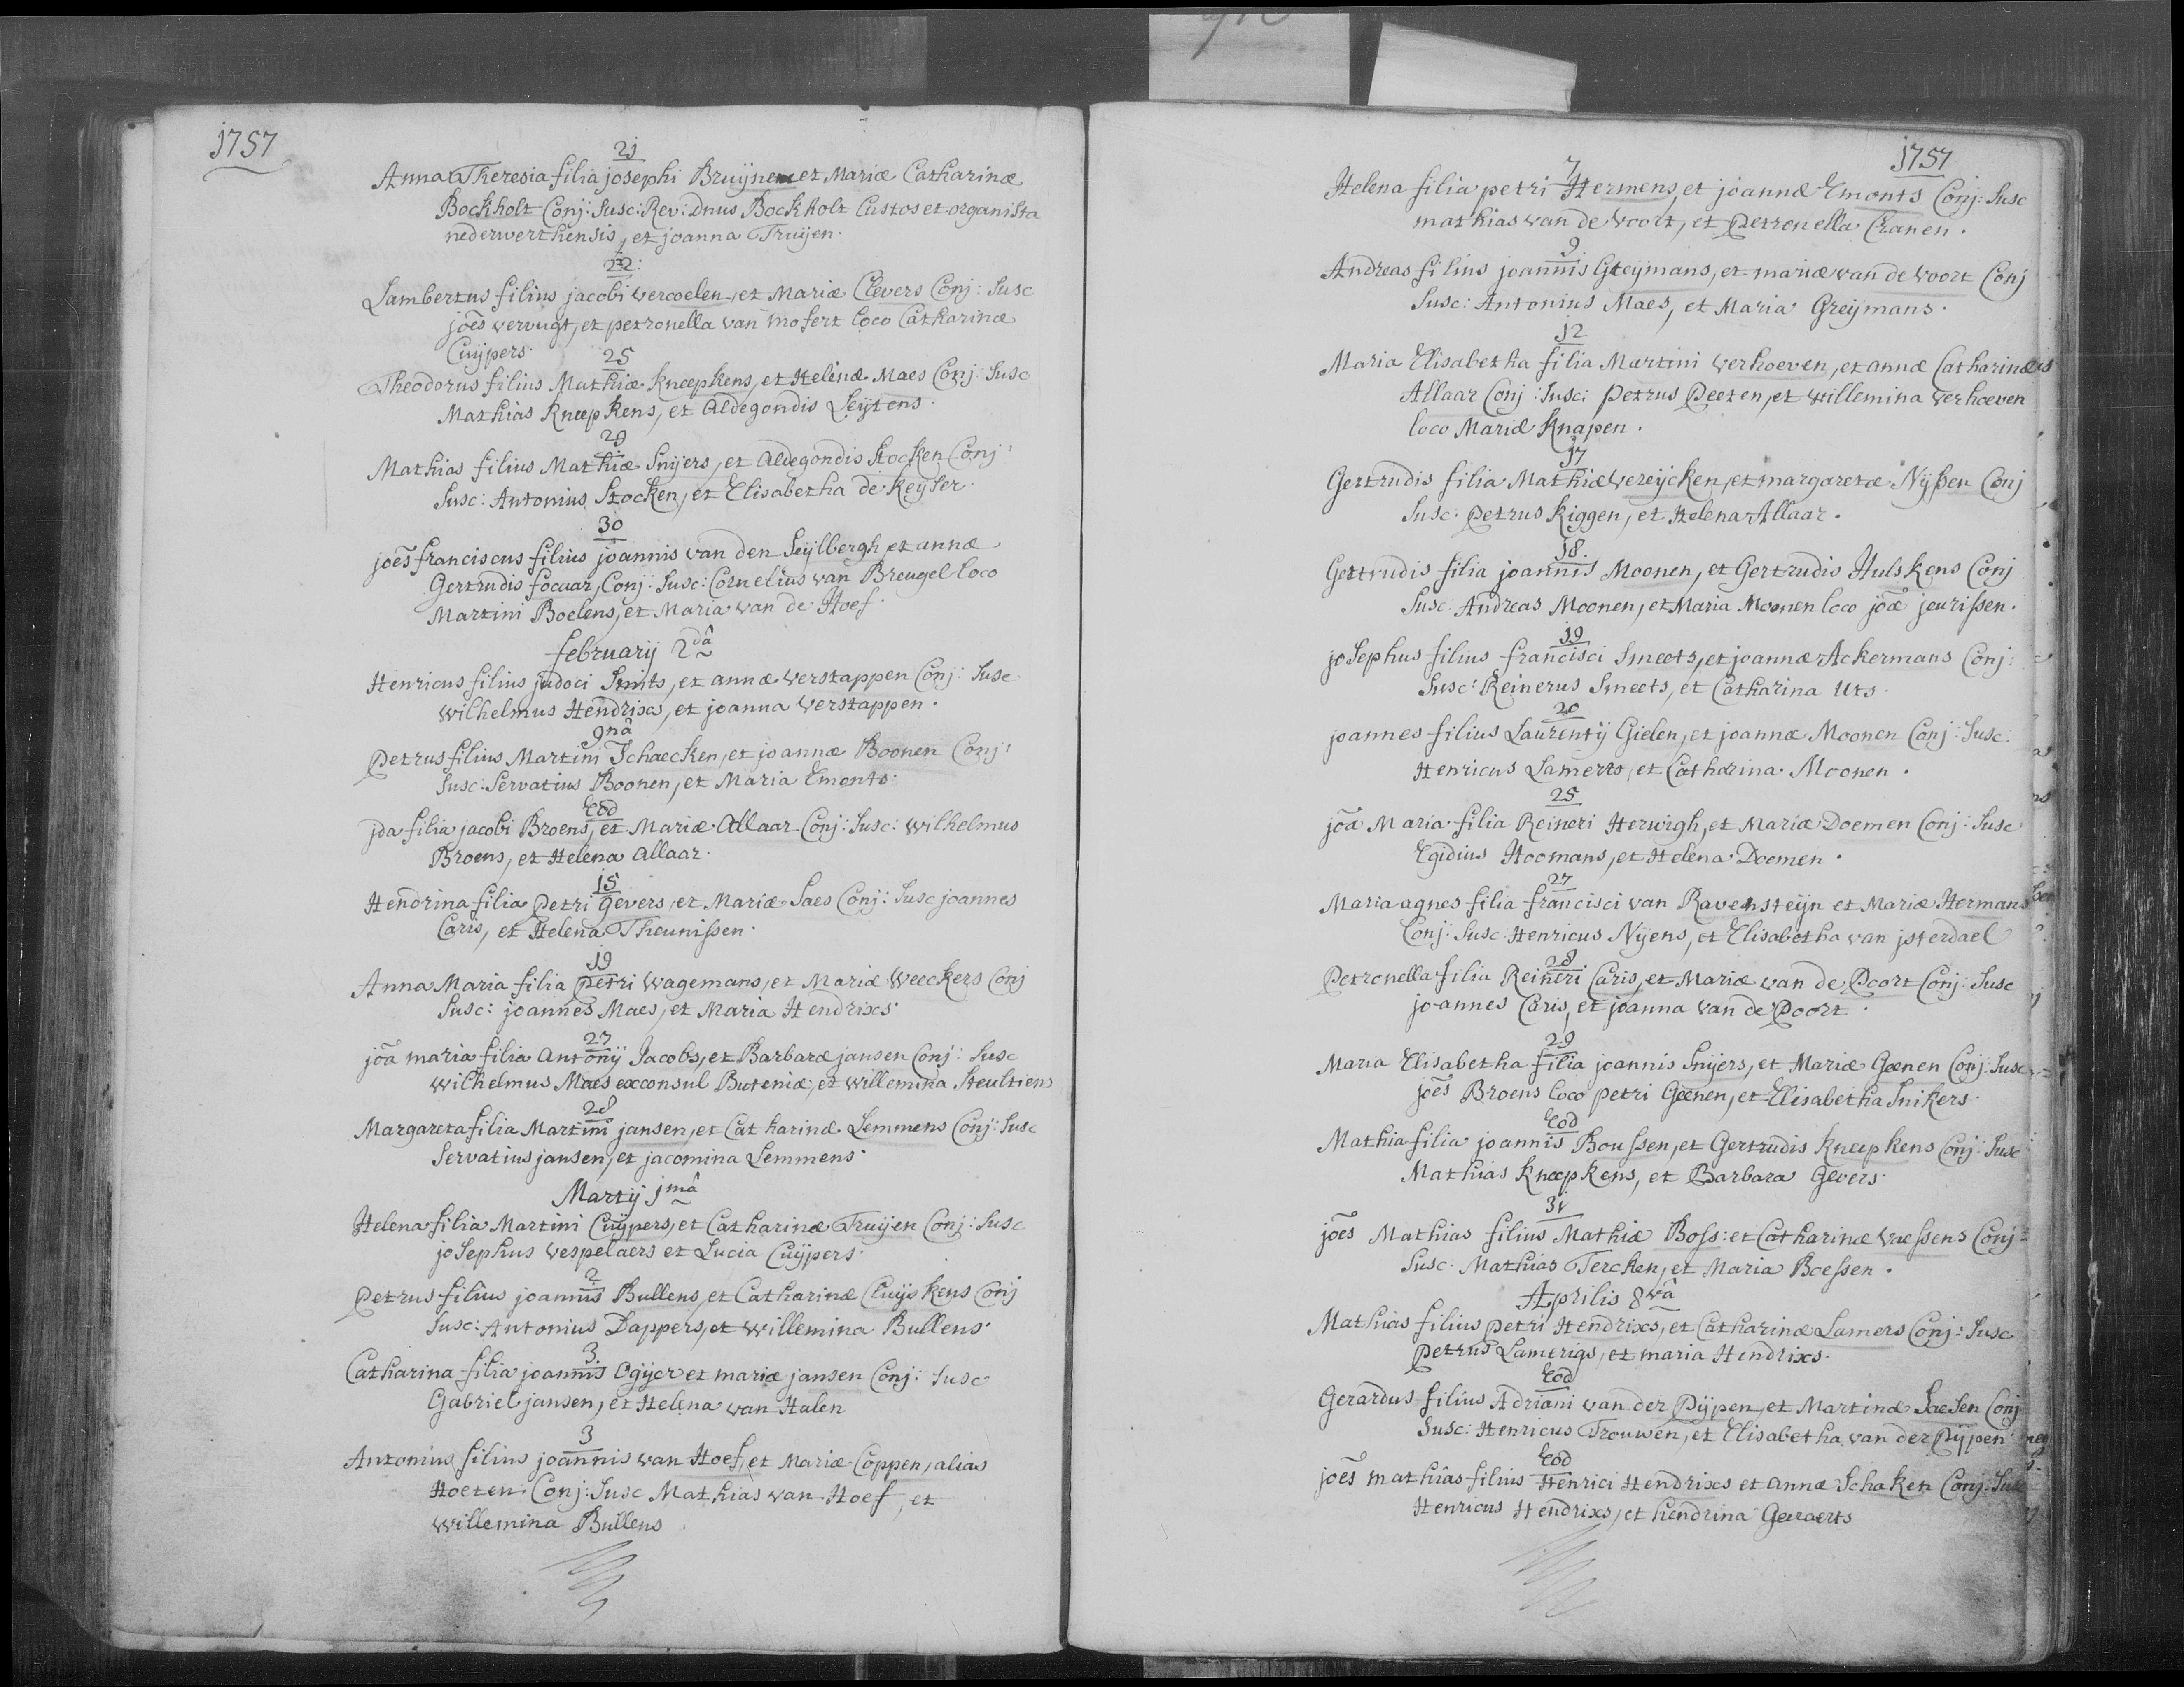 1757
21
Anna Theresia filia josephi Bruijnen et Mariæ Catharinæ
Bockholt Conj: Susc: Rev: Dnus Bockholt Custos et organista
nederwerthensis, et joanna Truijen.
22:
Lambertus filius jacobi vercoelen, et Mariæ Clevers Conj: Susc
joēs vervugt, et petronella van mofert loco Catharinæ
Cuijpers.
25
Theodorus filius Mathiæ Kneepkens, et Helenæ Maes Conj: Susc
Mathias Kneepkens, et Aldegondis Leijtens.
29
Mathias filius Mathiæ Snijers, et Aldegondis Stocken Conj:
Susc: Antonius Stocken, et Elisabetha de Keijser.
30
joēs franciscus filius joannis van den Seijlbergh et annæ
Gertrudis focaar, Conj: Susc: Cornelius van Breugel loco
Martini Boelens, et Maria van de Hoef.
february 2dâ
Henricus filius judoci Smits, et annæ verstappen Conj: Susc
Wilhelmus Hendrixs, et joanna Verstappen.
9nâ
Petrus filius Martini Schaecken, et joannæ Boonen Conj:
Susc: Servatius Boonen, et Maria Emonts.
Eod
jda filia jacobi Broens, et Mariæ Allaar Conj: Susc: Wilhelmus
Broens, et Helena Allaar.
15
Hendrina filia Petri Gevers, et Mariæ Saes Conj: Susc joannes
Caris, et Helena Theunissen.
19
Anna Maria filia Petri Wagemans, et Mariæ Weeckers Conj
Susc: joannes Maes, et Maria Hendrixs.
27
joā maria filia Antonij Jacobs, et Barbaræ jansen Conj: Susc
Wilhelmus Maes exconsul Buteniæ, et Willemina Steultiens
28
Margareta filia Martini jansen, et Catharinæ Lemmens Conj: Susc
Servatius jansen, et jacomina Lemmens.
Martij 1mâ
Helena filia Martini Cuijpers, et Catharinæ Truijen Conj: Susc
josephus Vespelaers et Lucia Cuijpers.
2
Petrus filius joannis Bullens, et Catharinæ Cluijskens Conj
Susc: Antonius Dappers, et Willemina Bullens.
3.
Catharina filia joannis Ogijer et mariæ jansen Conj: Susc
Gabriel jansen, et Helena van Halen
3
Antonius filius joannis van Hoef, et Mariæ Coppen, alias
Hoeten Conj: Susc Mathias van Hoef, et
Willemina Bullens
1757
7
Helena filia petri Hermens, et joannæ Emonts Conj: Susc
mathias van de Voort, et Petronella Cranen.
9
Andreas filius joannis Greijmans, et mariæ van de Voort Conj
Susc: Antonius Maes, et Maria Greijmans.
12
Maria Elisabetha filia Martini Verhoeven, et annæ Catharinæ
Allaar Conj: Susc: Petrus Peeten, et Willemina Verhoeven
loco Mariæ Knapen.
17
Gertrudis filia Mathiæ Vereijcken, et margaretæ Nijssen Conj
Susc: Petrus Kiggen, et Helena Allaar.
18.
Gertrudis filia joannis Moonen, et Gertrudis Hulskens Conj
Susc: Andreas Moonen, et Maria Moonen loco joæ jeurissen.
19
josephus filius francisci Smeets, et joannæ Ackermans Conj:
Susc: Reinerus Smeets, et Catharina Uts.
20
joannes filius Laurentij Gielen, et joannæ Moonen Conj: Susc.
Henricus Lamerts, et Catharina Moonen.
25
joā Maria filia Reineri Herwigh, et Mariæ Doemen Conj: Susc
Egidius Hoomans, et Helena Doemen.
27
Maria agnes filia francisci van Ravensteijn et Mariæ Hermans
Conj: Susc Henricus Nijens, et Elisabetha van jsterdael
28
Petronella filia Reineri Caris, et Mariæ van de Poort Conj: Susc
joannes Caris, et joanna van de Poort.
29
Maria Elisabetha filia joannis Snijers, et Mariæ Geenen Conj: Susc
joēs Broens loco petri Geenen, et Elisabetha Snikers.
Eod
Mathia filia joannis Boussen, et Gertrudis Kneepkens Conj: Susc
Mathias Kneepkens, et Barbara Gevers.
31
joēs Mathias filius Mathiæ Boss: et Catharinæ Vaessens Conj:
Susc: Mathias Tercken, et Maria Boessen.
Aprilis 8vâ
Mathias filius petri Hendrixs, et Catharinæ Lamers Conj: Susc
petrus Lamerigs, et maria Hendrixs.
Eod
Gerardus filius Adriani van der Pijpen, et Martinæ Saesen Conj
Susc: Henricus Trouwen, et Elisabetha van der Pijpen
Eod
joēs mathias filius Henrici Hendrixs et annæ Schaken Conj: Susc
Henricus Hendrixs, et hendrina Geeraerts